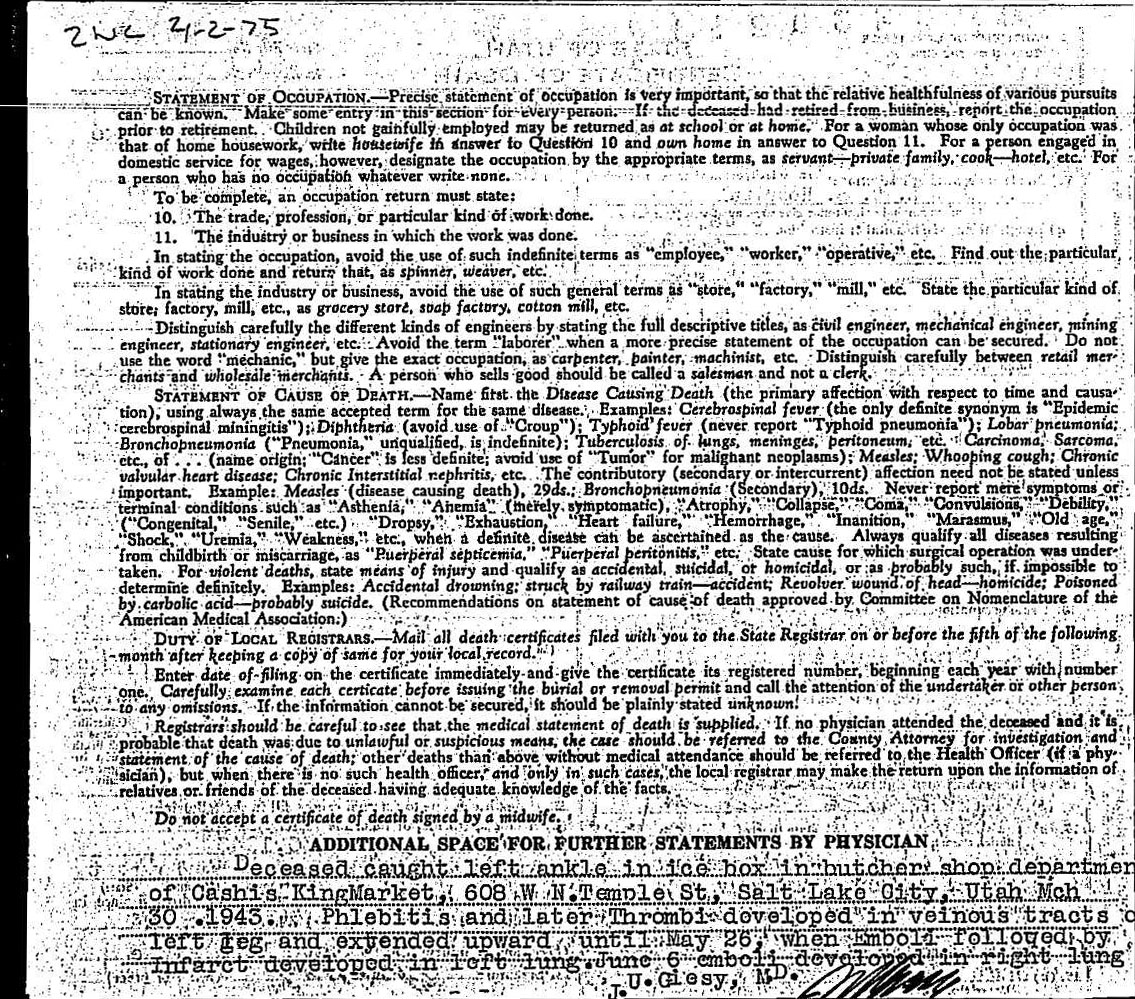 4-2-75
STATEMENT OF OCCUPATION.—Precise statement of occupation is very important, so that the relative healthfulness of various pursuits
can be known. Make some entry in this section for every person. If the deceased had retired from business, report the occupation
prior to retirement. Children not gainfully employed may be returned as at school or at home. For a woman whose only occupation was
that of home housework, write housewife in answer to Question 10 and own home in answer to Question 11. For a person engaged in
domestic service for wages, however, designate the occupation by the appropriate terms, as servant—private family, cook—hotel, etc. For
a person who has no occupation whatever write none.
To be complete, an occupation return must state:
10. The trade, profession, or particular kind of work done.
11. The industry or business in which the work was done.
In stating the occupation, avoid the use of such indefinite terms as "employee," "worker," "operative," etc. Find out the particular
kind of work done and return that, as spinner, weaver, etc.
In stating the industry or business, avoid the use of such general terms as "store," "factory," "mill," etc. State the particular kind of
store, factory, mill, etc., as grocery store, soap factory, cotton mill, etc.
Distinguish carefully the different kinds of engineers by stating the full descriptive titles, as civil engineer, mechanical engineer, mining
engineer, stationary engineer, etc. Avoid the term "laborer" when a more precise statement of the occupation can be secured. Do not
use the word "mechanic," but give the exact occupation, as carpenter, painter, machinist, etc. Distinguish carefully between retail mer-
chants and wholesale merchants. A person who sells good should be called a salesman and not a clerk.
STATEMENT OF CAUSE OF DEATH.—Name first the Disease Causing Death (the primary affection with respect to time and causa-
tion), using always the same accepted term for the same disease. Examples: Cerebrospinal fever (the only definite synonym is "Epidemic
cerebrospinal miningitis"); Diphtheria (avoid use of "Croup"); Typhoid fever (never report "Typhoid pneumonia"); Lobar pneumonia;
Bronchopneumonia ("Pneumonia," unqualified, is indefinite); Tuberculosis of lungs, meninges, peritoneum, etc. Carcinoma, Sarcoma,
etc., of . . . (name origin; "Cancer" is less definite; avoid use of "Tumor" for malignant neoplasms); Measles; Whooping cough; Chronic
valvular heart disease; Chronic Interstitial nephritis, etc. The contributory (secondary or intercurrent) affection need not be stated unless
important. Example: Measles (disease causing death), 29ds.; Bronchopneumonia (Secondary), 10ds. Never report mere symptoms or
terminal conditions such as "Asthenia," "Anemia" (merely symptomatic), "Atrophy," "Collapse," "Coma," "Convulsions," "Debility,"
("Congenital," "Senile," etc.) "Dropsy," "Exhaustion," "Heart failure," "Hemorrhage," "Inanition," "Marasmus," "Old age,"
"Shock," "Uremia," "Weakness," etc., when a definite disease can be ascertained as the cause. Always qualify all diseases resulting
from childbirth or miscarriage, as "Puerperal septicemia," "Puerperal peritonitis," etc. State cause for which surgical operation was under-
taken. For violent deaths, state means of injury and qualify as accidental, suicidal, or homicidal, or as probably such, if impossible to
determine definitely. Examples: Accidental drowning; struck by railway train—accident; Revolver wound of head—homicide; Poisoned
by carbolic acid—probably suicide. (Recommendations on statement of cause of death approved by Committee on Nomenclature of the
American Medical Association.)
DUTY OF LOCAL REGISTRARS.—Mail all death certificates filed with you to the State Registrar on or before the fifth of the following
month after keeping a copy of same for your local record.
Enter date of filing on the certificate immediately and give the certificate its registered number, beginning each year with number
one. Carefully examine each certicate before issuing the burial or removal permit and call the attention of the undertaker or other person
to any omissions. If the information cannot be secured, it should be plainly stated unknown!
Registrars should be careful to see that the medical statement of death is supplied. If no physician attended the deceased and it is
probable that death was due to unlawful or suspicious means, the case should be referred to the County Attorney for investigation and
statement of the cause of death; other deaths than above without medical attendance should be referred to the Health Officer (if a phy-
sician), but when there is no such health officer, and only in such cases, the local registrar may make the return upon the information of
relatives or friends of the deceased having adequate knowledge of the facts.
Do not accept a certificate of death signed by a midwife.
ADDITIONAL SPACE FOR FURTHER STATEMENTS BY PHYSICIAN
Deceased caught left ankle in ice box in butcher shop departmen
of Cashis KingMarket, 608 W N.Temple St, Salt Lake City, Utah Mch
30 .1943. Phlebitis and later Thrombi developed in veinous tracts o
left leg and extended upward until May 26, when Emboli followed by
Infarct developed in left lung.June 6 emboli developed in right lung
J.U.Giesy, MD.